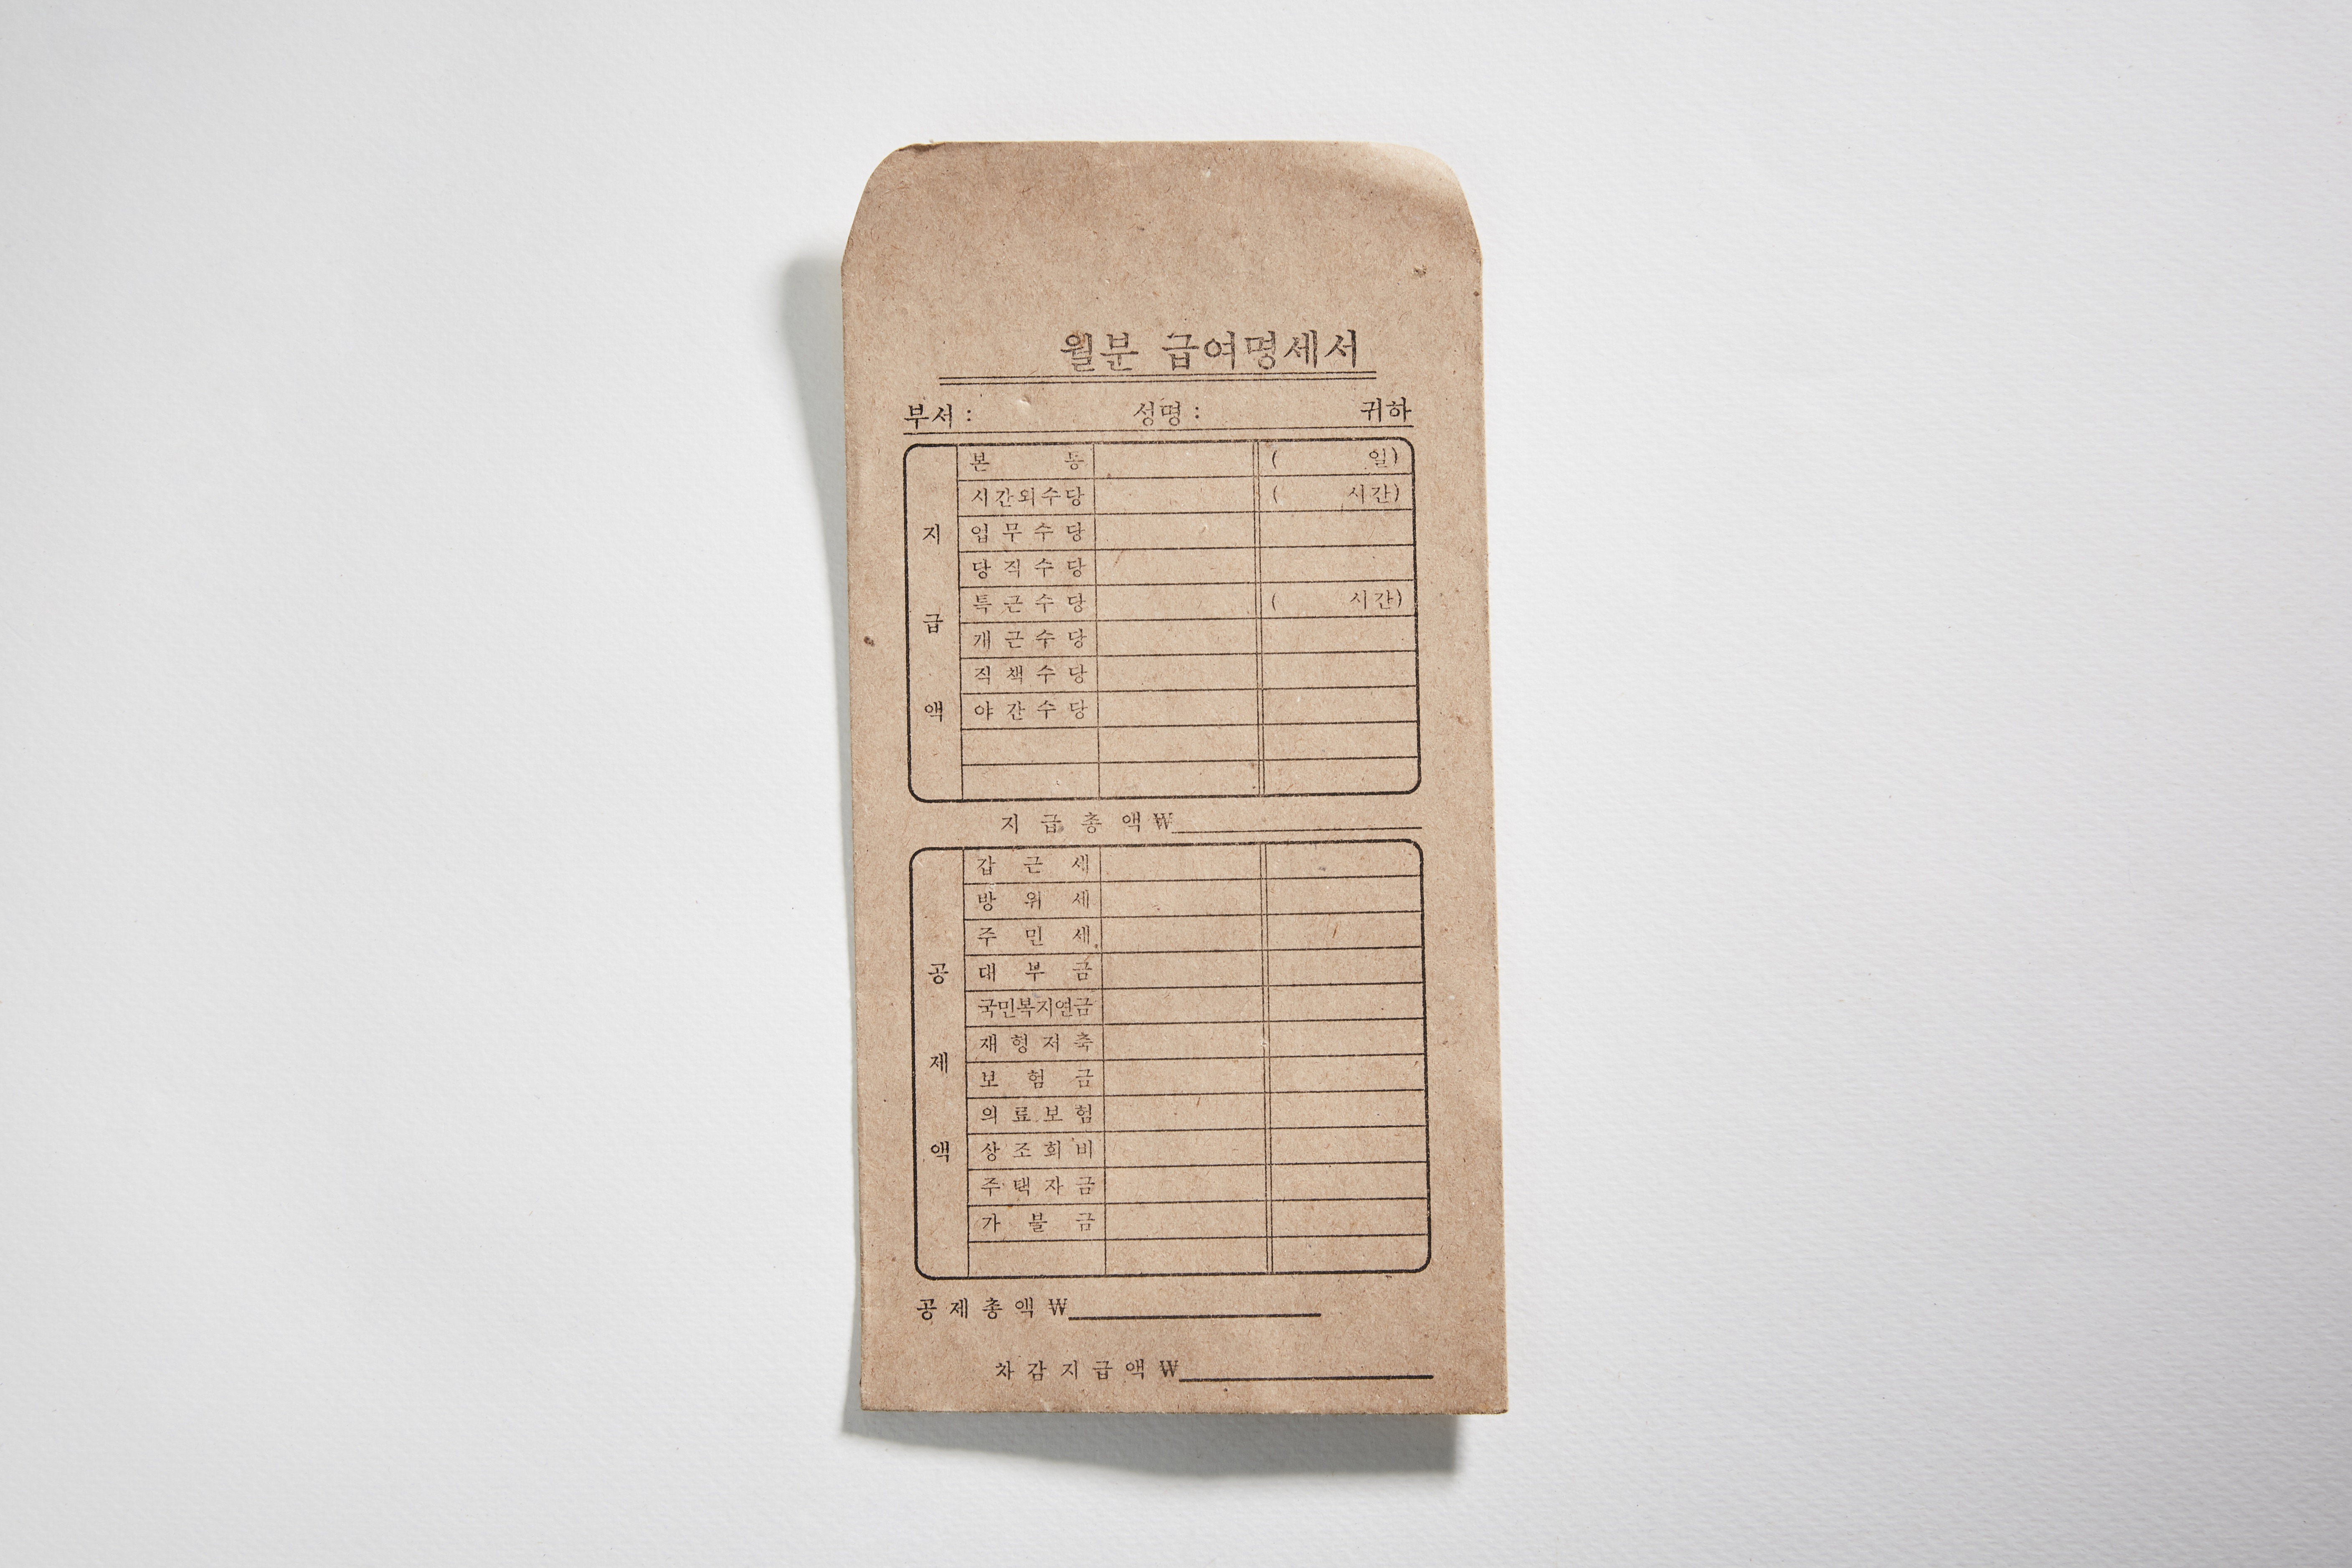 월분 급여명세서
부서 : 성명 : 귀하
지급액
본 등 ( 일)
시간외수당 ( 시간)
업무수당
당직수당
특근수당 ( 시간)
개근수당
직책수당
야간수당
지급총액 ₩
공제액
갑근세
방위세
주민세
대부금
국민복지연금
재형저축
보험금
의료보험
상조회비
주택자금
가불금
공제총액 ₩
차감지급액 ₩